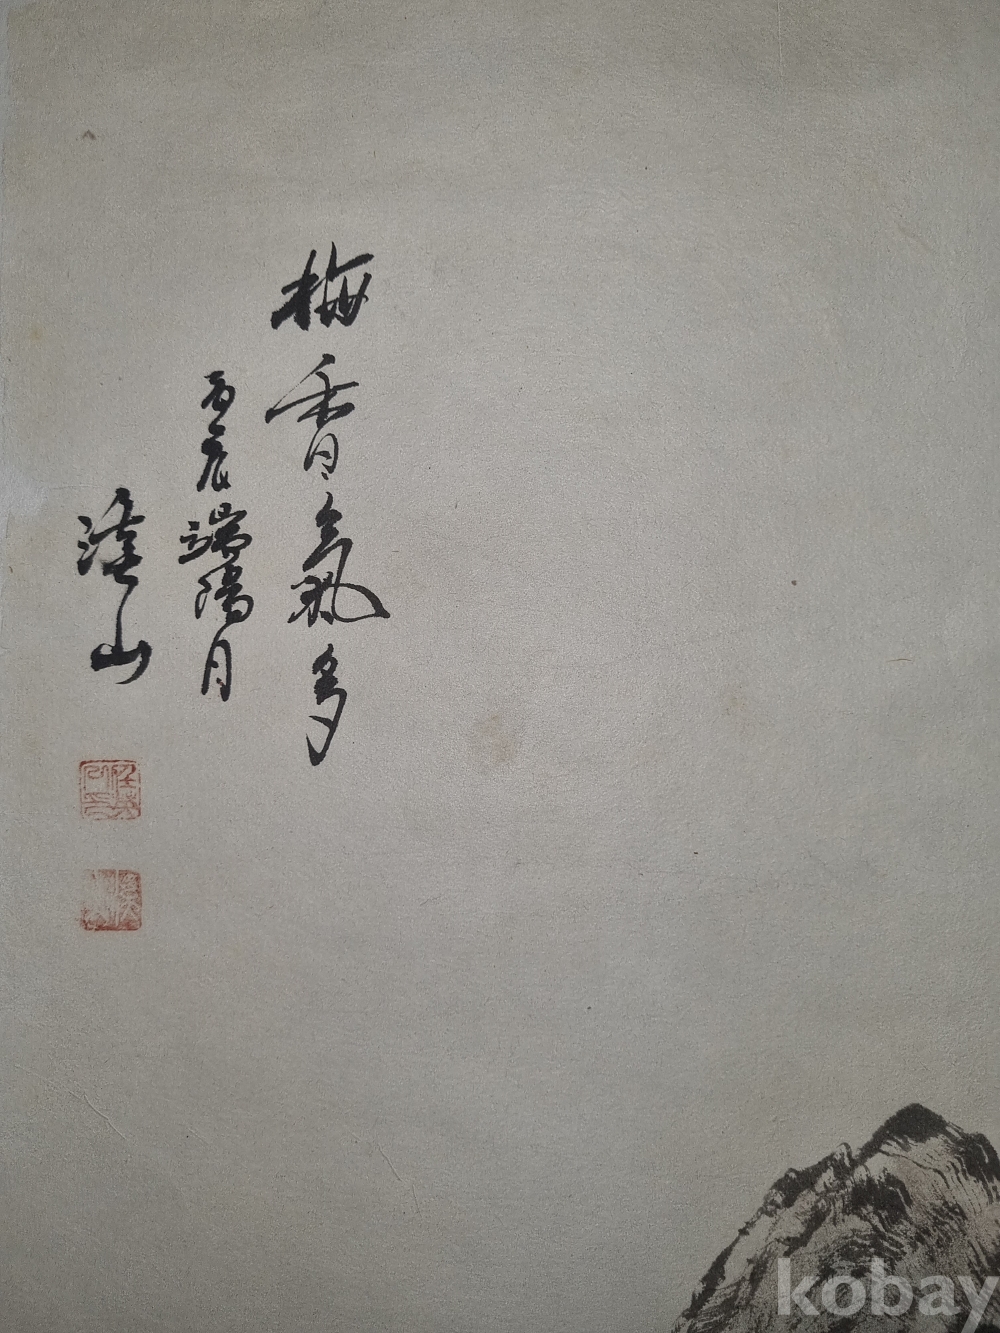 梅香氣多
丙辰端陽月
山
kobay